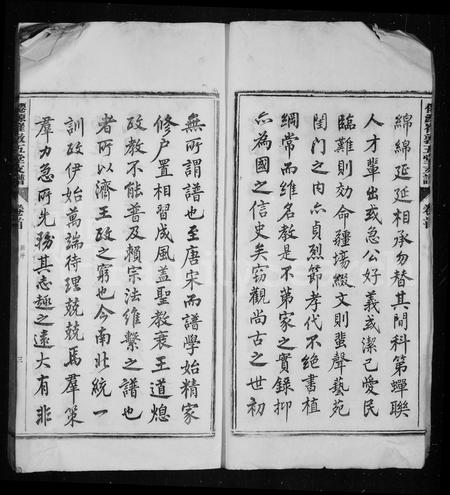 綿綿延延相承勿替其間科第蟬聯
人才輩出或急公好義或潔己愛民
臨難則効命疆場綴文則蜚聲藝苑
閨門之内亦貞烈節孝代不絕書植
綱常而維名教是不第家之實錄抑
亦為國之信史矣窃觀尚古之世初
無所謂譜也至唐宋而譜學始精家
修户置相習成風蓋聖教衰王道熄
政教不能普及賴宗法維繫之譜也
者所以濟王政之窮也今南北統一
訓政伊始萬端待理兢兢焉羣策
羣力急所先務其志趣之遠大有非
卷首
三